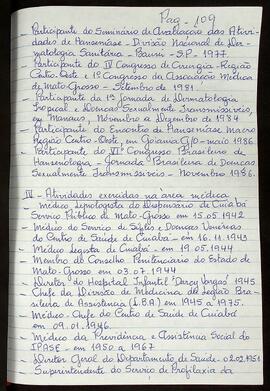 Pag - 109
- Participante do Seminário de Avaliação das Ativi-
dades de Hanseníase - Divisão Nacional de Der-
matologia Sanitária - Bauru - S.P - 1977.
- Participante do IV Congresso de Cirurgia - Região
Centro-Oeste e 1º Congresso da Associação Médica
de Mato-Grosso - Setembro de 1981.
- Participante da 1ª Jornada de Dermatologia
Tropical e Doenças Sexualmente Transmissíveis,
em Manaus, Novembro a Dezembro de 1984
- Participante do Encontro de Hanseníase Macro
Região Centro-Oeste, em Goiania G/O - maio 1986
- Participante do VIº Congresso Brasileiro de
Hansenologia - Jornada Brasileira de Doenças
Sexualmente Transmissíveis - Novembro 1986.
IV - Atividades exercidas na área médica
- Médico Leprologista do Dispensário de Cuiabá
Serviço Público de Mato-Grosso em 15.05.1942
- Médico do Serviço de Sífilis e Doenças Venereas
do Centro de Saúde de Cuiabá - em 16.11.1943
- Médico Legista de Cuiabá - em 19.05.1944
- Membro do Conselho Penitenciário do Estado de
Mato-Grosso em 03.07.1944
- Diretor do Hospital Infantil "Darcy Vargas" 1945
- Chefe da Divisão de Medicina da Legião Bra-
sileira de Assistência (L.B.A) em 1945 a 1975.
- Médico-Chefe do Centro de Saúde de Cuiabá
em 09.01.1946.
- Médico da Previdência e Assistência Social do
IPASE - em 1950 a 1967
- Diretor Geral do Departamento de Saúde - 02.02.1951
- Superintendente do Serviço de Profilaxia da